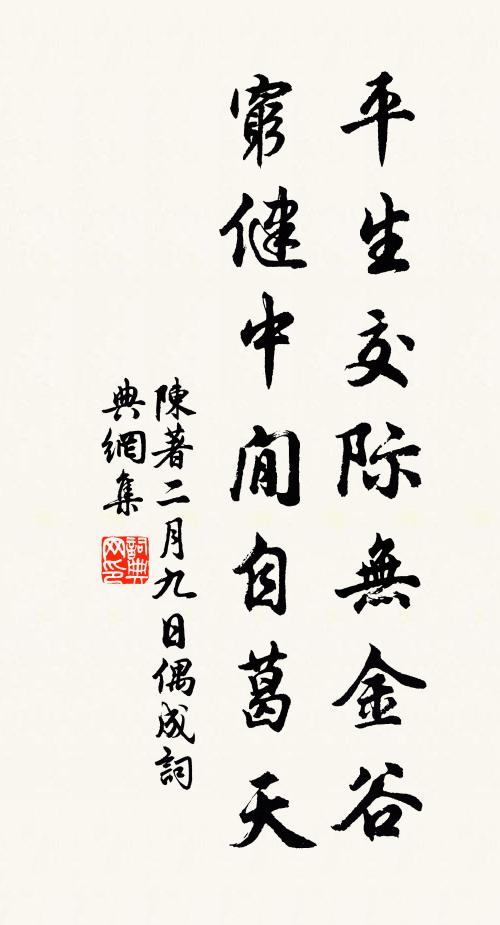 平生交际無金谷
窮健中間自葛天
陳著二月九日偶成詞
典網集
詞典
网印